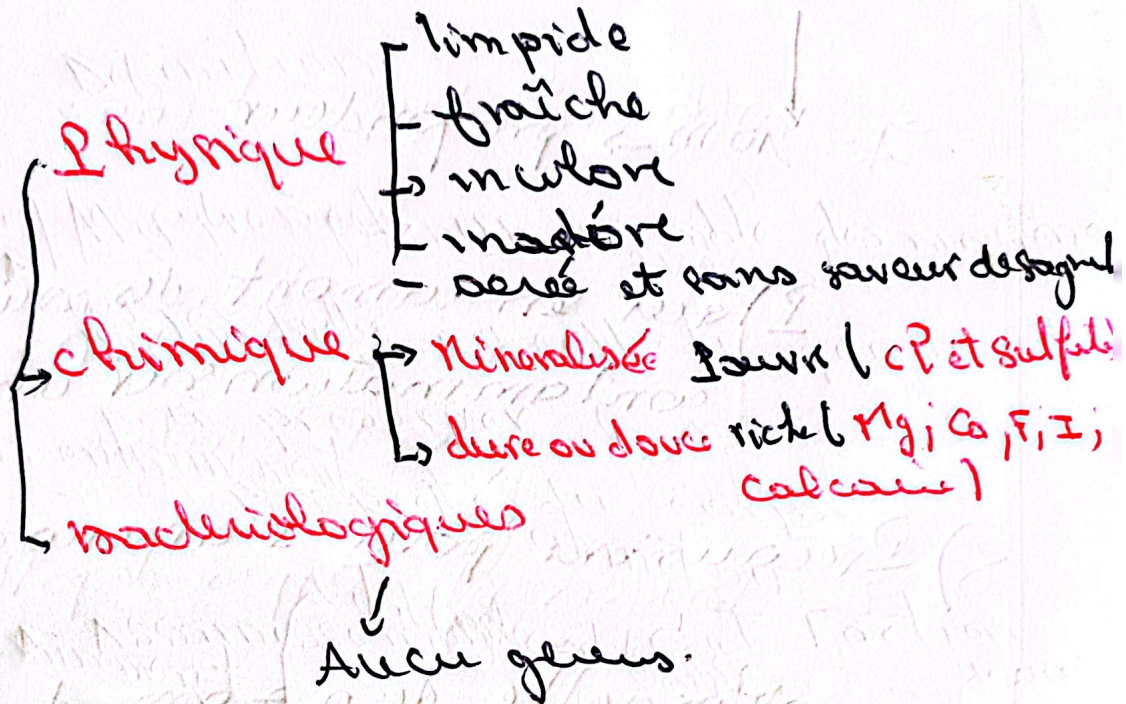 limpide
fraîche
Physique
incolore
inodore
aerée et sans saveur desagrel
chimique Mineralisée Pauvre ( cl et sulfate
dure ou douce riche ( Mg ; Ca , F , I ;
calcaire )
bacteriologiques
Aucu germs.